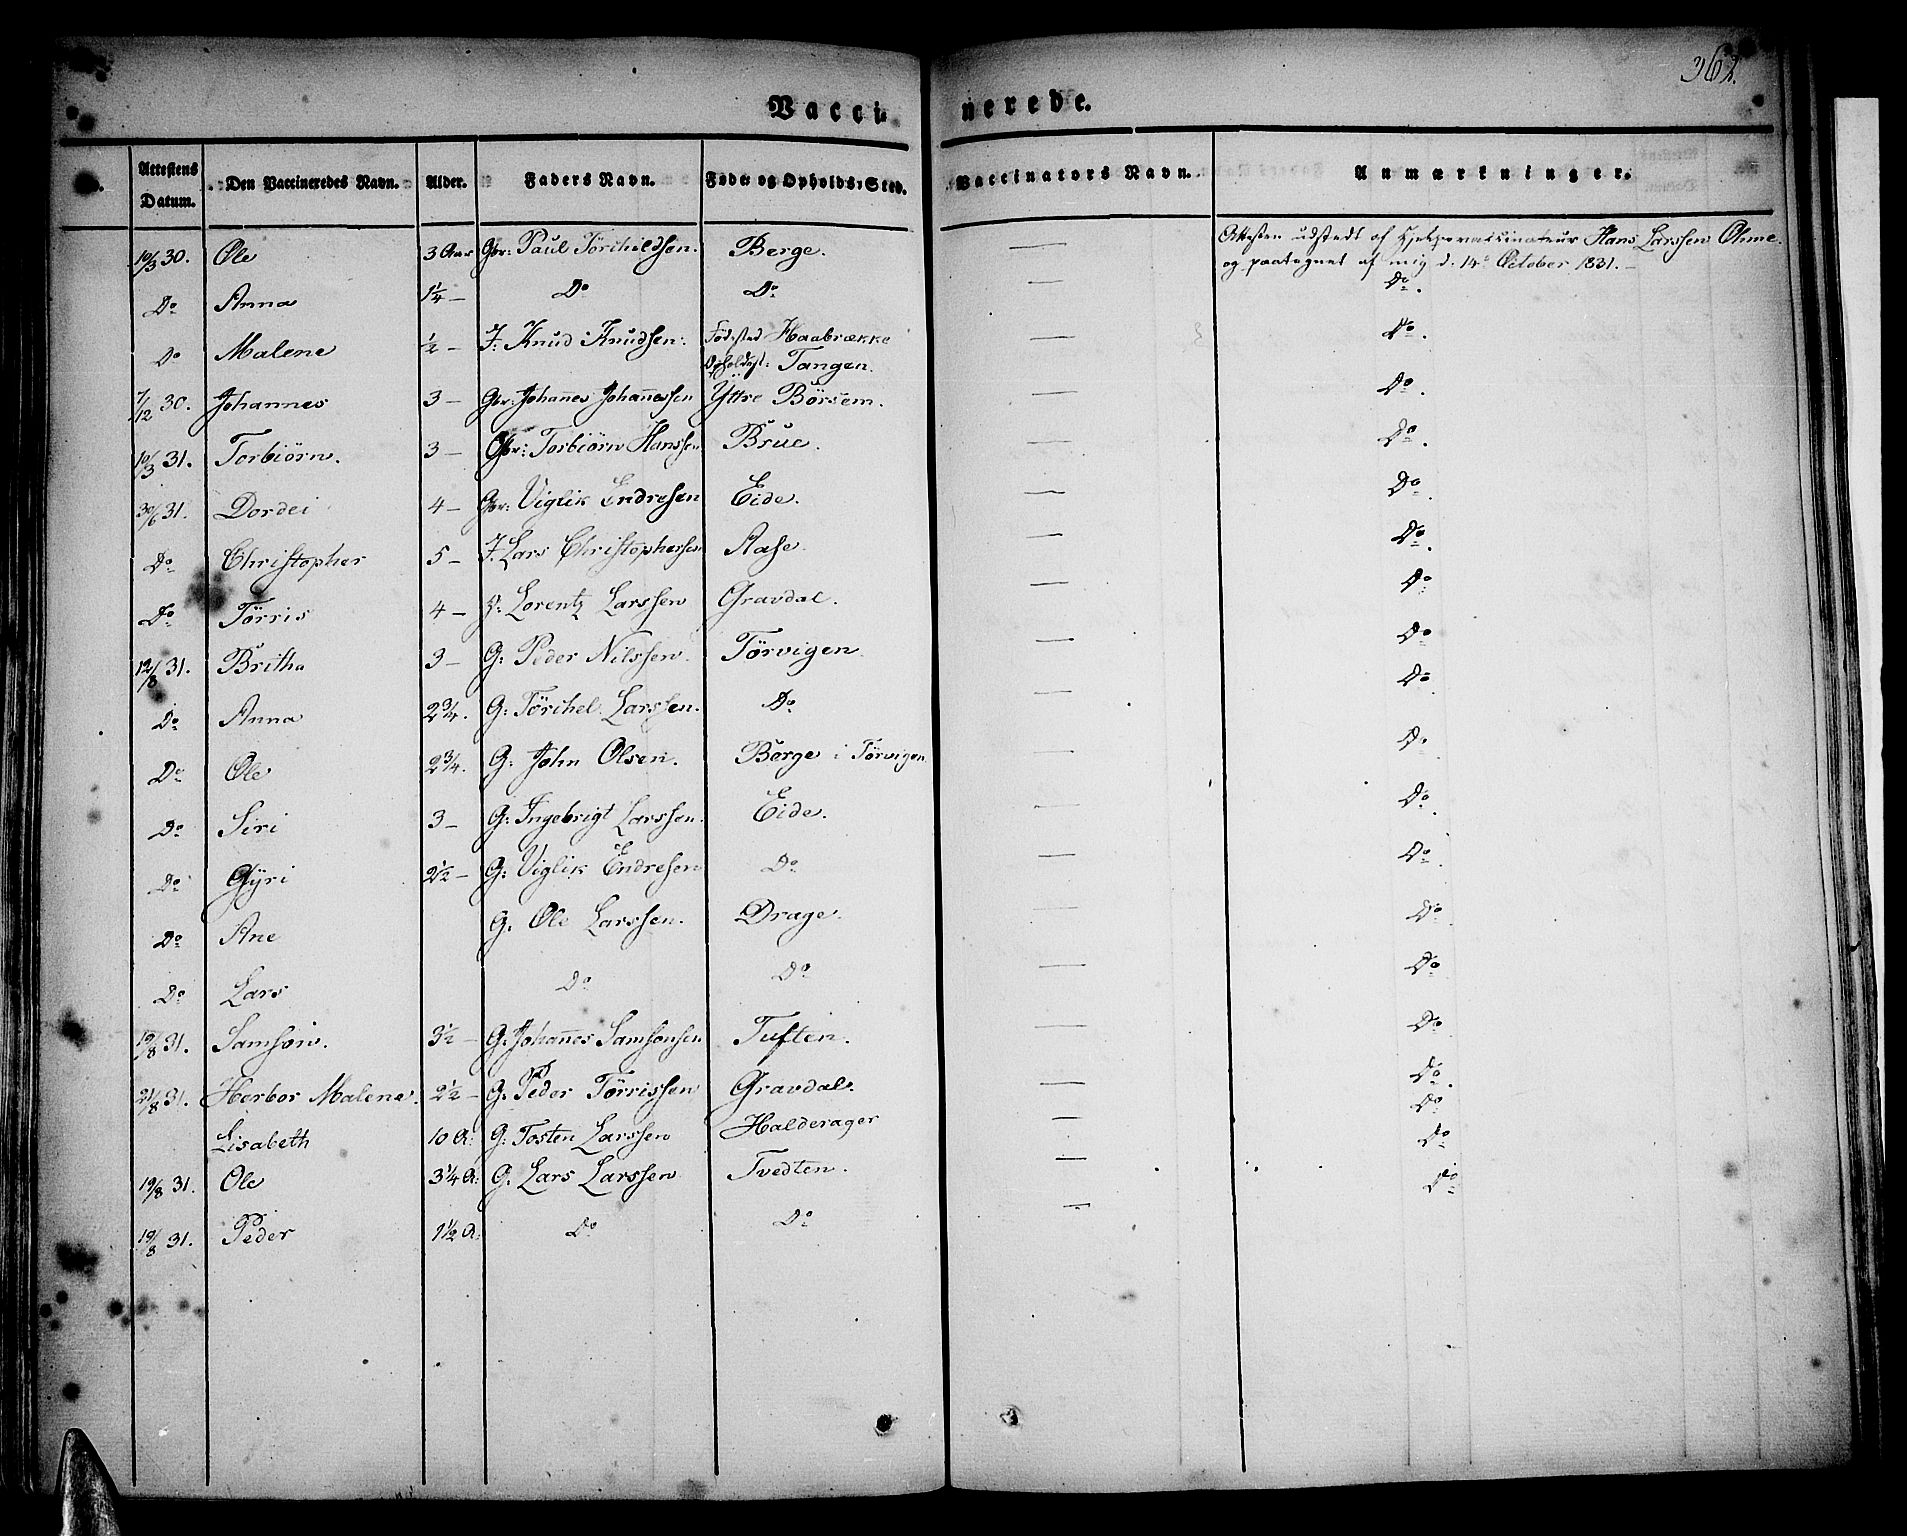 362.
Vacci nerede.
Attestens Datum. Den Vaccineredes Navn. Alder. Faders Navn. Føde og Opholds-Sted. Vaccinators Navn. Anmærkninger.
10/3 30. Ole 3 Aar Gbr: Paul Törchildsen. Berge. — Attesten udstedt af Hjelpevaccinateur Hans Larssen Ohme
og paategnet af mig d. 14de October 1831. —
Do Anna 1 1/4 — Do Do — Do.
Do Malene 1/2 — F: Knud Knudsen. Födested Haabrække — Do.
Opholdsst: Tangen.
7/12 30. Johannes 3 — Gbr: Johanes Johannessen Yttre Börsem. — Do.
10/3 31. Torbiörn. 3 — Gbr: Torbiörn Hanssen Brue. — Do.
30/6 31. Dordei 4 — Gbr: Viglik Endresen Eide. — Do.
Do Christopher 5 — F. Lars Christophersen Aase. — Do.
Do Törris 4 — F: Lorentz Larssen Gravdal. — Do
12/8 31. Britha 3 — G: Peder Nilssen. Törvigen. — Do
Do Anna 2 3/4. G: Törchel Larssen. Do — Do
Do Ole 2 3/4. G: John Olsen. Berge i Törvigen — Do
Do Siri 3 — G: Ingebrigt Larssen. Eide. — Do.
Do Gÿri 2 1/2 — G: Viglik Endresen Do — Do.
Do Ane G. Ole Larssen. Drage. — Do
Do Lars Do Do — Do
19/8 31. Samson. 3 1/2 — G: Johannes Samsonsen Tuften. — Do
21/8 31. Herbor Malene. 2 1/2 — G. Peder Törrissen Gravdal. — Do.
Lisabeth 10 A: G: Tosten Larssen Halderager — Do
19/8 31. Ole 3 1/4 A: G. Lars Larssen Tvedten. — Do
19/8 31. Peder 1 1/2 A: Do Do — Do